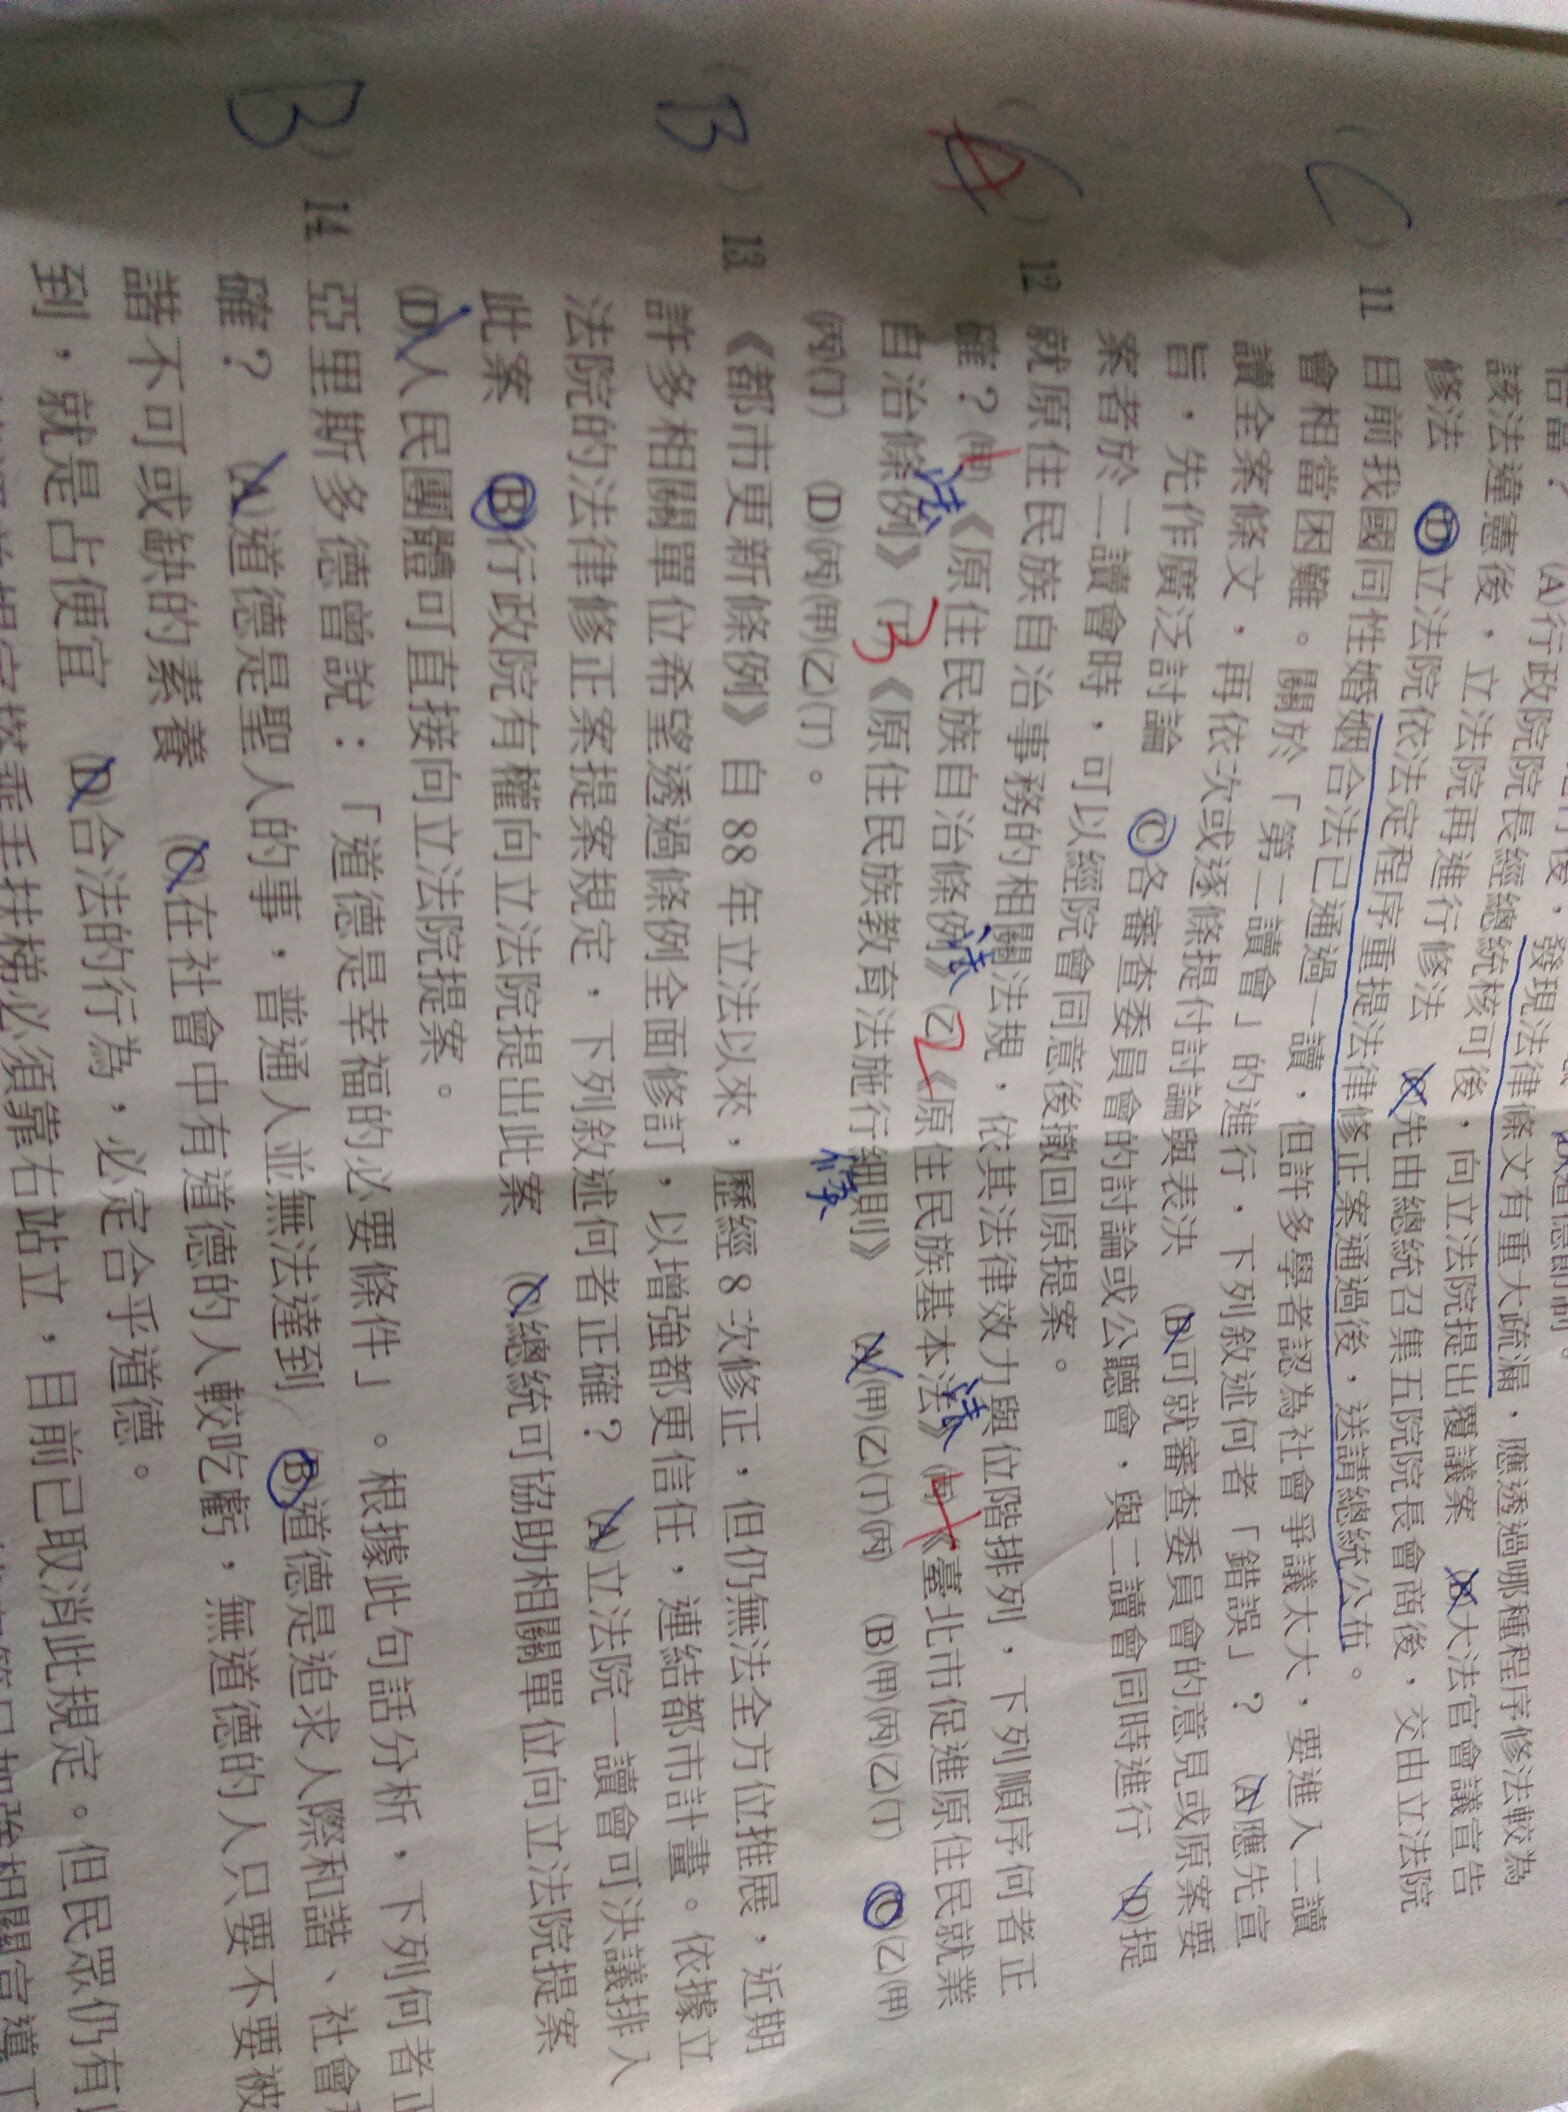 恰當？ (A)行政院院長經總統核可後，向立法院提出覆議案 (B)大法官會議宣告
該法違憲後，立法院再進行修法 (C)先由總統召集五院院長會商後，交由立法院
修法 (D)立法院依法定程序重提法律修正案通過後，送請總統公布。
C
11 目前我國同性婚姻合法已通過一讀，但許多學者認為社會爭議太大，要進入二讀
會相當困難。關於「第二讀會」的進行，下列敘述何者「錯誤」？ (A)應先宣
讀全案條文，再依次或逐條提付討論與表決 (B)可就審查委員會的意見或原案要
旨，先作廣泛討論 (C)各審查委員會的討論或公聽會，與二讀會同時進行 (D)提
案者於二讀會時，可以經院會同意後撤回原提案。
A
12 就原住民族自治事務的相關法規，依其法律效力與位階排列，下列順序何者正
確？(甲)《原住民族自治條例》(乙)《原住民族基本法》(丙)《臺北市促進原住民就業
法 法 2 法
自治條例》(丁)《原住民族教育法施行細則》 (A)(甲)(乙)(丁)(丙) (B)(甲)(丙)(乙)(丁) (C)(乙)(甲)
3
(丙)(丁) (D)(丙)(甲)(乙)(丁)。
B
13 《都市更新條例》自 88 年立法以來，歷經 8 次修正，但仍無法全方位推展，近期
許多相關單位希望透過條例全面修訂，以增強都更信任，連結都市計畫。依據立
法院的法律修正案提案規定，下列敘述何者正確？ (A)立法院一讀會可決議排入
此案 (B)行政院有權向立法院提出此案 (C)總統可協助相關單位向立法院提案
(D)人民團體可直接向立法院提案。
B
14 亞里斯多德曾說：「道德是幸福的必要條件」。根據此句話分析，下列何者正
確？ (A)道德是聖人的事，普通人並無法達到 (B)道德是追求人際和諧、社會
諾不可或缺的素養 (C)在社會中有道德的人較吃虧，無道德的人只要不要被
到，就是占便宜 (D)合法的行為，必定合乎道德。
扶梯必須靠右站立，目前已取消此規定。但民眾仍有